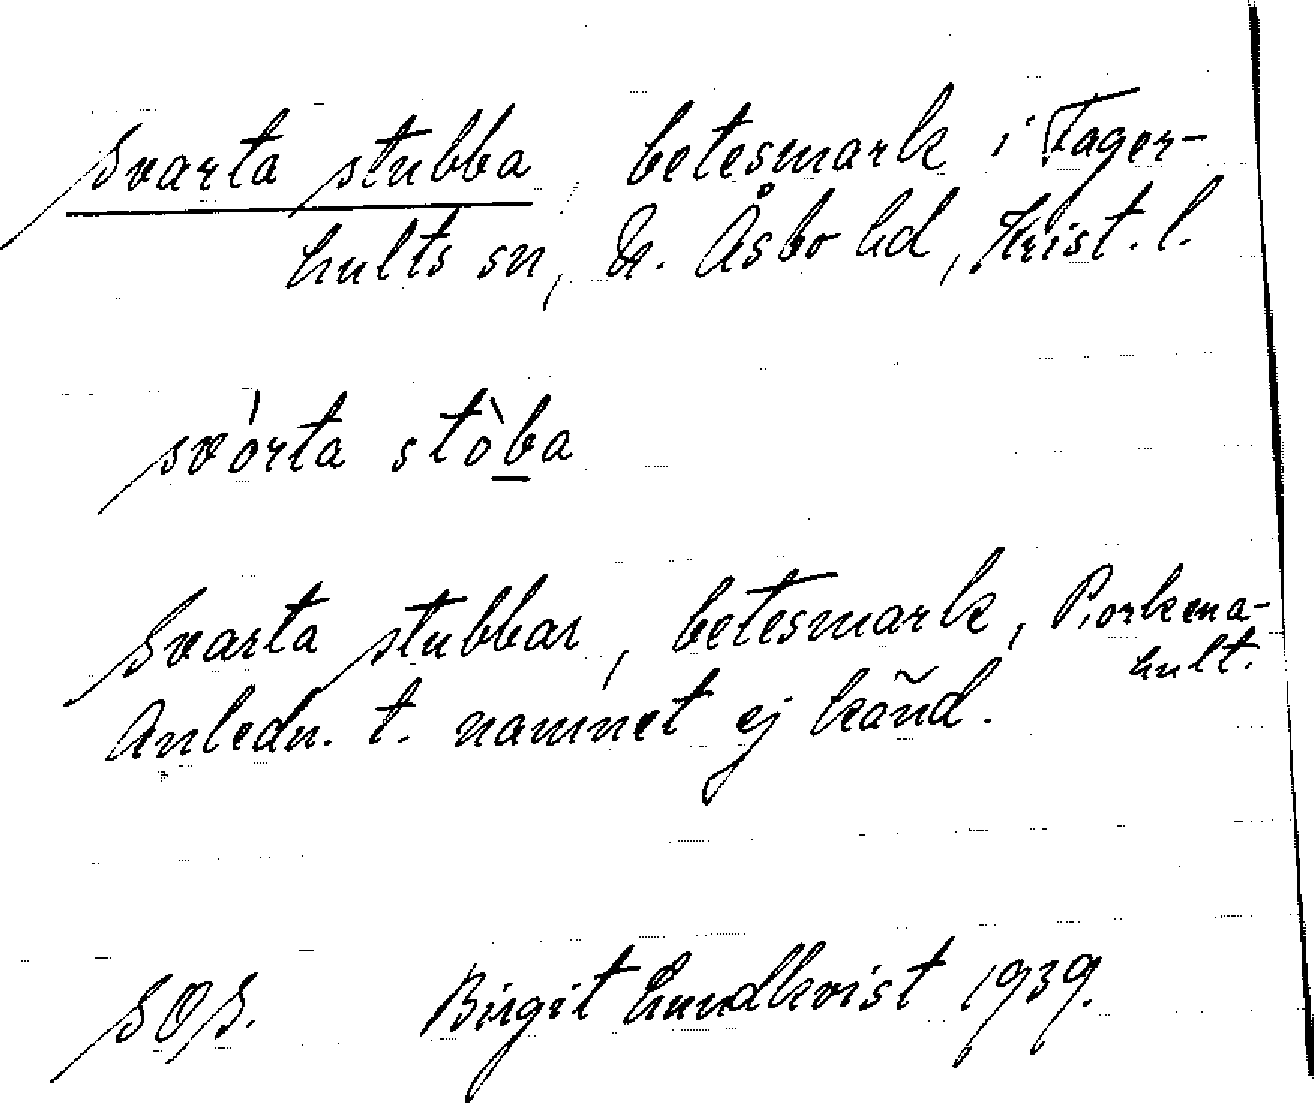 Svarta stubba, betesmark i Fager-
hults sn, N. Åsbo hd, Krist. l.
svórta stòba
Svarta stubbar, betesmark, Porkena-
hult.
Anledn. t. namnet ej känd.
SOS. Birgit Lundkvist 1939.